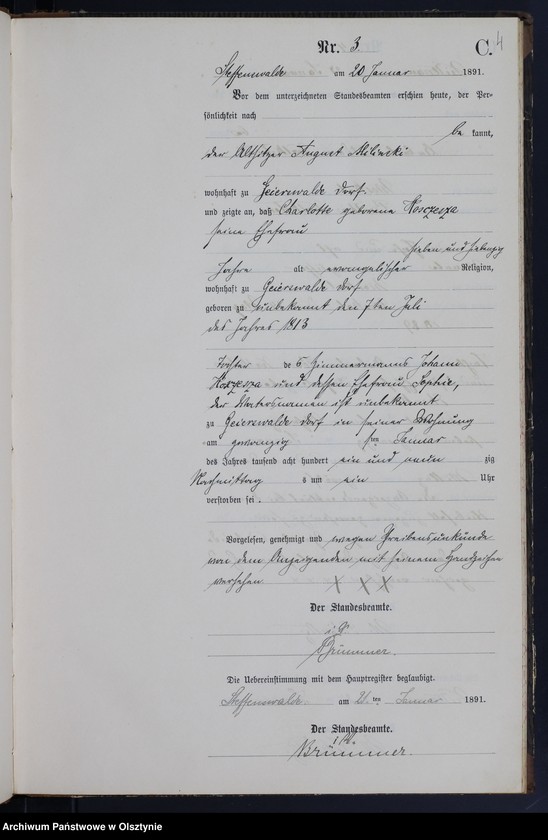 Nr. 3
C.
4
Steffenswalde am 20 Januar 1891.
Vor dem unterzeichneten Standesbeamten erschien heute, der Per-
sönlichkeit nach
be kannt,
der Altsitzer August Milinski
wohnhaft zu Geierswalde Dorf
und zeigte an, daß Charlotte geborene Koszezza
seine Ehefrau
sieben und siebenzig
Jahre alt evangelischer Religion,
wohnhaft zu Geierswalde Dorf
geboren zu unbekannt den 7ten Juli
des Jahres 1813
Tochter des Zimmermanns Johann
Koszezza und dessen Ehefrau Sophie,
der Vatersnamen ist unbekannt
zu Geierswalde Dorf in seiner Wohnung
am zwanzig sten Januar
des Jahres tausend acht hundert ein und neun zig
Nachmittag s um ein Uhr
verstorben sei.
Vorgelesen, genehmigt und wegen Schreibensunkunde
von dem Anzeigenden mit seinem Handzeichen
versehen X X X
Der Standesbeamte.
Brümmer.
Die Uebereinstimmung mit dem Hauptregister beglaubigt.
Steffenswalde am 21 ten Januar 1891.
Der Standesbeamte.
Brümmer.
Archiwum Państwowe w Olsztynie